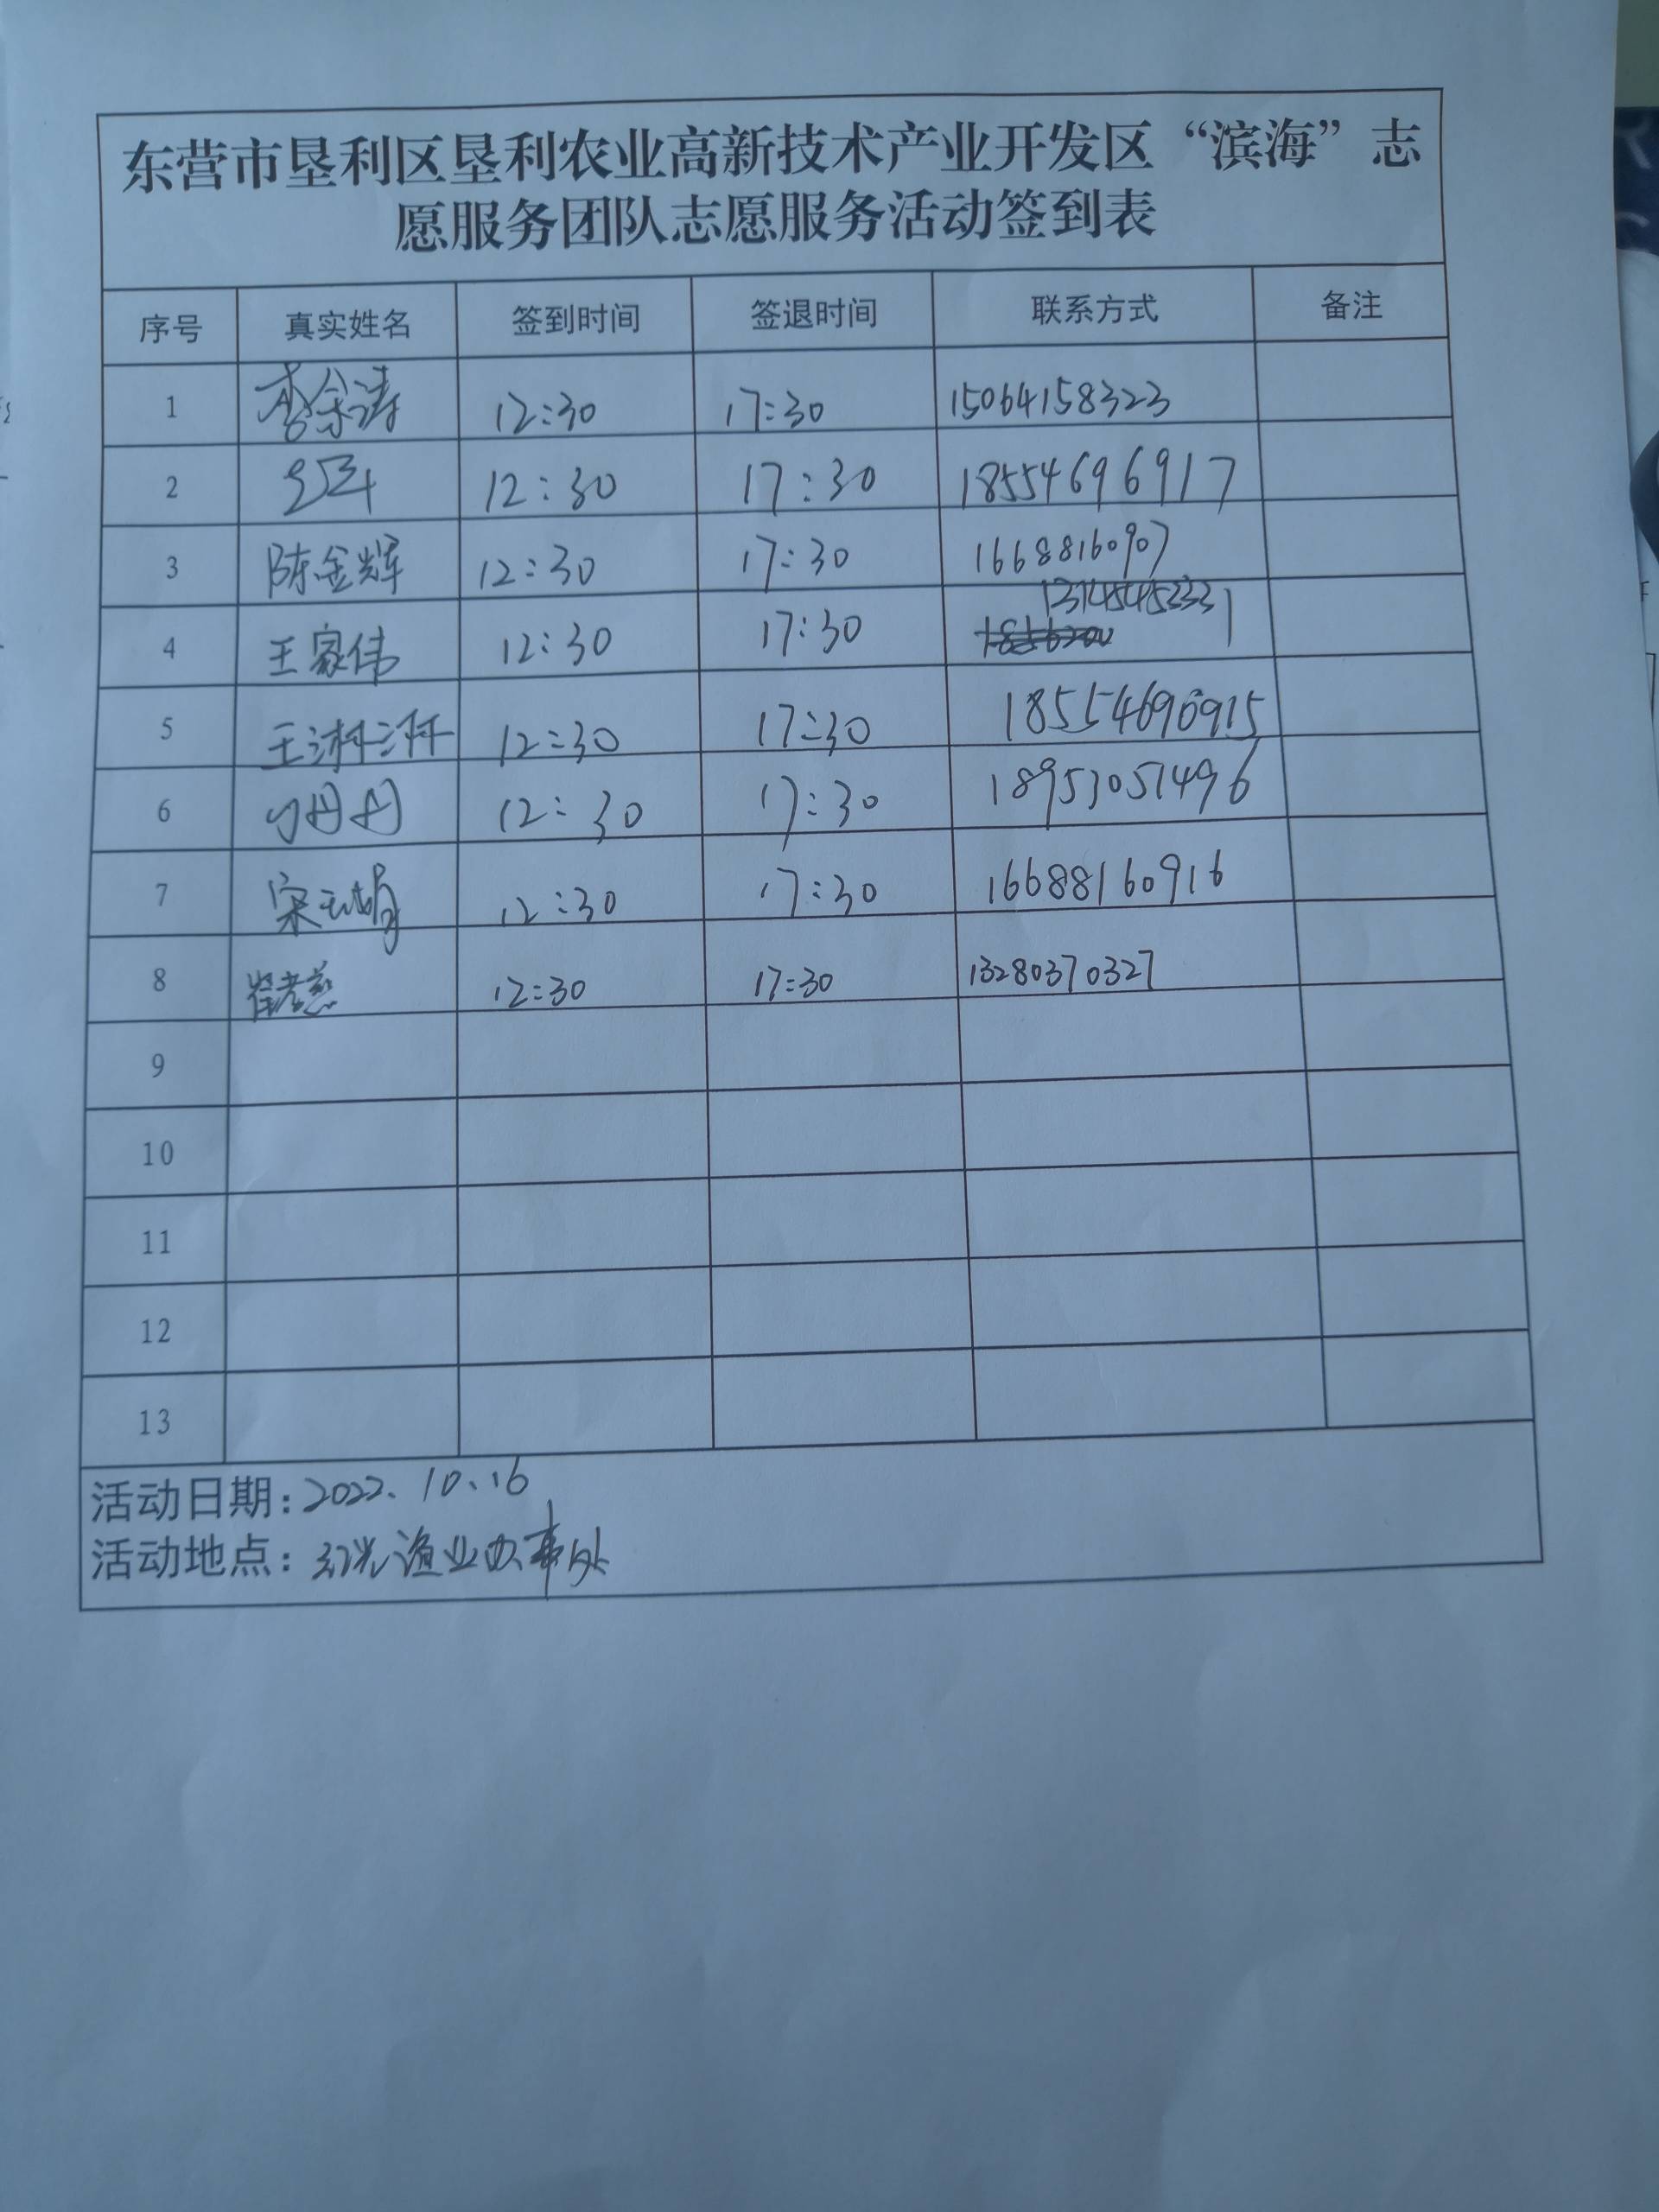 东营市垦利区垦利农业高新技术产业开发区“滨海”志
愿服务团队志愿服务活动签到表
序号 真实姓名 签到时间 签退时间 联系方式 备注
1 李余涛 12:30 17:30 15064158323
2 12:30 17:30 18554696917
3 陈金辉 12:30 17:30 16688160907
13145452331
4 王家伟 12:30 17:30
5 王湘汧 12:30 17:30 18554696915
6 丹丹 12:30 17:30 18953051496
7 宋 娟 12:30 17:30 16688160916
8 崔孝慈 12:30 17:30 13280370327
9
10
11
12
13
活动日期:2022.10.16
活动地点:红光渔业办事处